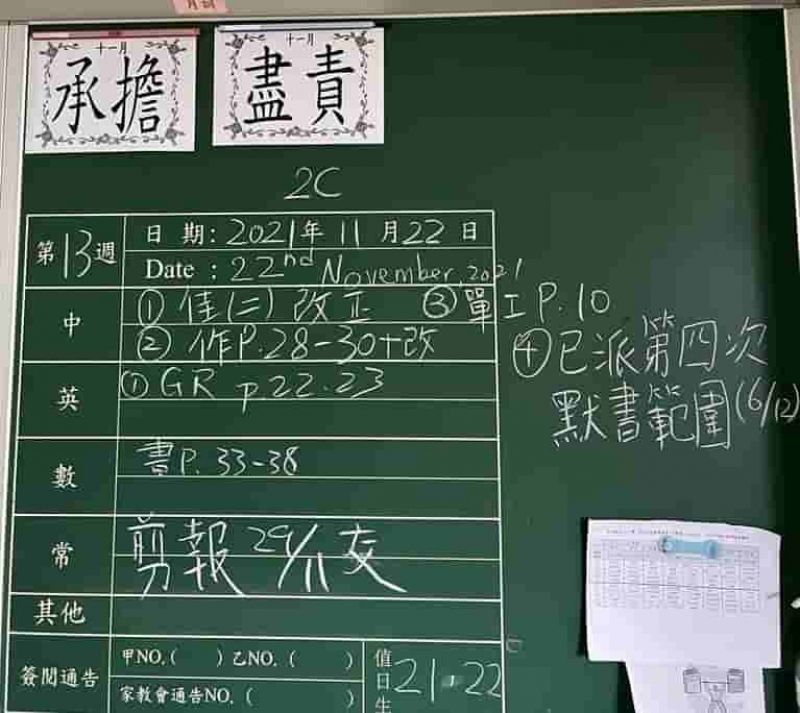 十一月
承擔
十一月
盡責
2C
第13週
日期：2021年11月22日
Date : 22nd November, 2021
中
① 佳(二)改正 ③單工P.10
② 作P.28-30+改
④已派第四次
默書範圍(6/12)
英
① GR p.22.23
數
書P.33-38
常
剪報 29/11交
其他
簽閱通告
甲NO.( )乙NO.( )
家教會通告NO.( )
值日生 21,22